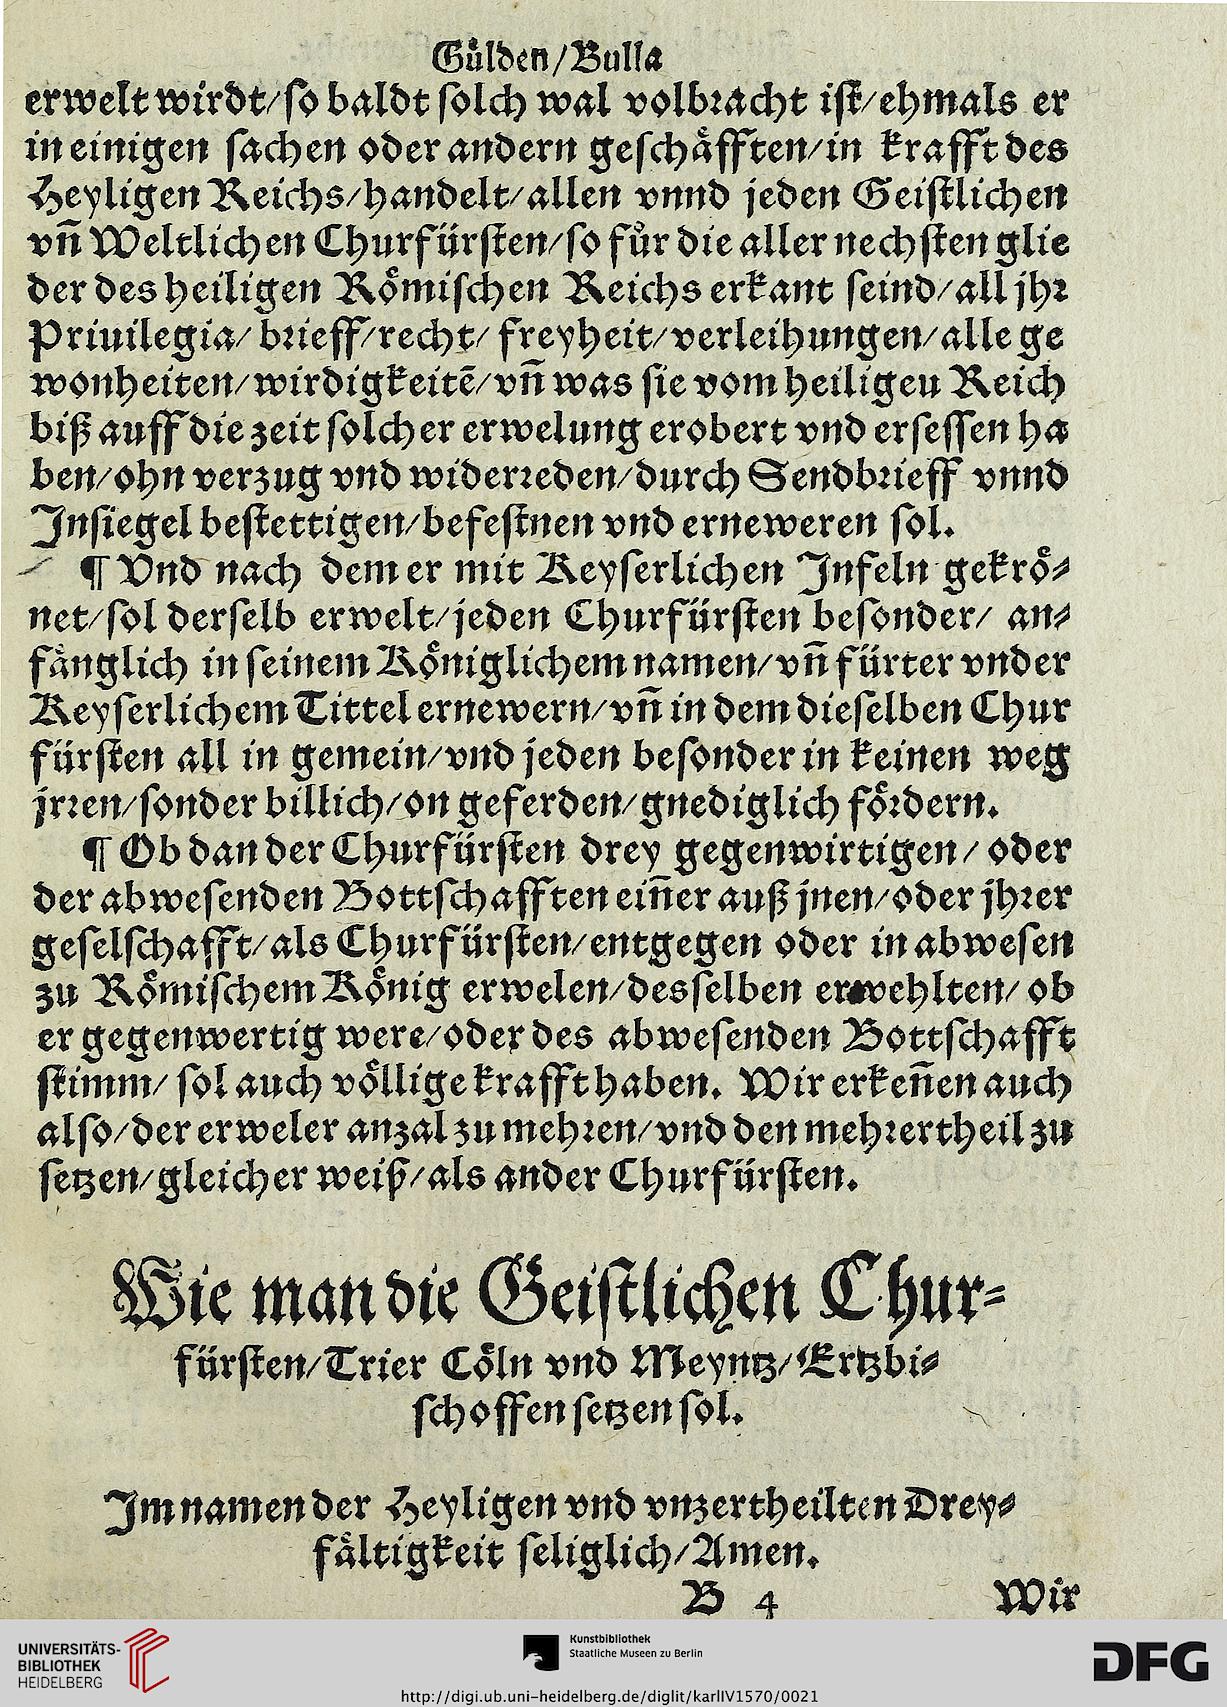 Gůlden/Bulla
erwelt wirdt/so baldt solch wal volbracht ist/ehmals er
in einigen sachen oder andern geschåfften/in krafft des
Heyligen Reichs/handelt/allen vnnd jeden Geistlichen
vn̄ Weltlichen Churfürsten/so fůr die aller nechsten glie
der des heiligen Rőmischen Reichs erkant seind/all jhr
Priuilegia/ brieff/recht/ freyheit/verleihungen/alle ge
wonheiten/wirdigkeitē/vn̄ was sie vom heiligeu Reich
biß auff die zeit solcher erwelung erobert vnd ersessen ha
ben/ohn verzug vnd widerreden/durch Sendbrieff vnnd
Insiegel bestettigen/befestnen vnd erneweren sol.
¶ Vnd nach dem er mit Keyserlichen Infeln gekrö⸗
net/sol derselb erwelt/jeden Churfürsten besonder/ an⸗
fånglich in seinem Königlichem namen/vn̄ fürter vnder
Keyserlichem Tittel ernewern/vn̄ in dem dieselben Chur
fürsten all in gemein/vnd jeden besonder in keinen weg
jrren/sonder billich/on geferden/gnediglich fördern.
¶ Ob dan der Churfürsten drey gegenwirtigen/ oder
der abwesenden Bottschafften ein̄er auß jnen/oder jhrer
geselschafft/als Churfürsten/entgegen oder in abwesen
zu Römischem König erwelen/desselben erwehlten/ ob
er gegenwertig were/oder des abwesenden Bottschafft
stimm/ sol auch völlige krafft haben. Wir erken̄en auch
also/der erweler anzal zu mehren/vnd den mehrertheil zu
setzen/gleicher weiß/als ander Churfürsten.
Wie man die Geistlichen Chur⸗
fürsten/Trier Cöln vnd Meyntz/Ertzbi⸗
schoffen setzen sol.
Im namen der Heyligen vnd vnzertheilten Drey⸗
fåltigkeit seliglich/Amen.
B 4 Wir
UNIVERSITÄTS-
BIBLIOTHEK
HEIDELBERG
Kunstbibliothek
Staatliche Museen zu Berlin
DFG
http://digi.ub.uni-heidelberg.de/diglit/karlIV1570/0021